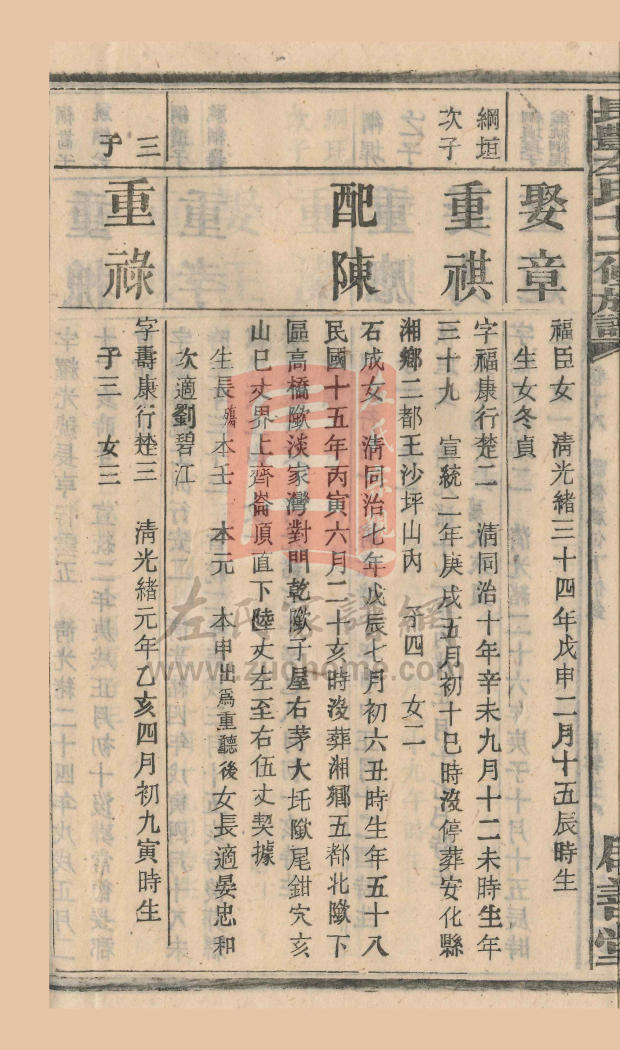 娶章
福臣女 淸光緖三十四年戊申二月十五辰時生
生女冬貞
綱垣
次子
重祺
字福康行楚二 淸同治十年辛未九月十二未時生年
三十九 宣統二年庚戌五月初十巳時沒停葬安化縣
湘鄉二都王沙坪山內 子四 女二
配陳
石成女 淸同治七年戊辰七月初六丑時生年五十八
民國十五年丙寅六月二十亥時沒葬湘鄉五都北歟下
區高橋歟淡家灣對門乾歟子屋右茅大坵歟尾鉗穴亥
山巳丈界上齊崙頂直下陸丈左至右伍丈契據
生長殤本壬 本元 本申出爲重聽後女長適晏忠和
次適劉碧江
三
子
重祿
字壽康行楚三 淸光緖元年乙亥四月初九寅時生
子三 女三
左氏家譜網
www.zuohome.com